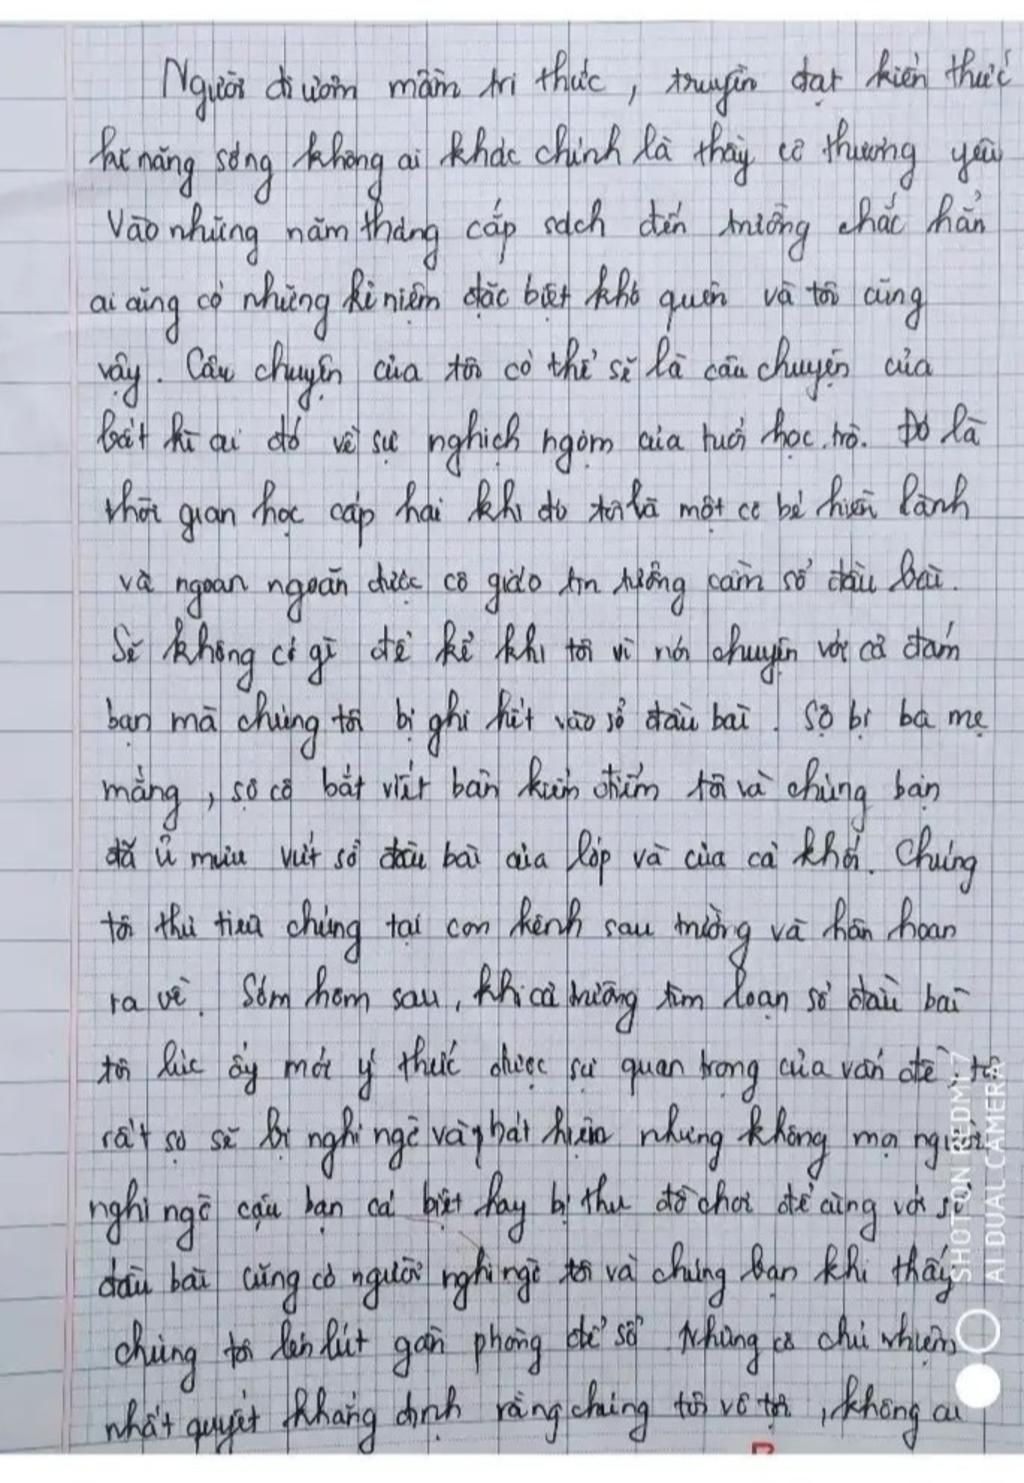 Người đi ươm mầm tri thức, truyền đạt kiến thức
kĩ năng sống không ai khác chính là thầy cô thương yêu
Vào những năm tháng cắp sách đến trường chắc hẳn
ai cũng có những kỉ niệm đặc biệt khó quên và tôi cũng
vậy. Câu chuyện của tôi có thể sẽ là câu chuyện của
bất kì ai đó về sự nghịch ngợm của tuổi học trò. Đó là
thời gian học cấp hai khi đó tôi là một cô bé hiền lành
và ngoan ngoãn được cô giáo tin tưởng cầm sổ đầu bài.
Sẽ không có gì để kể khi tôi vì nói chuyện với cả đám
bạn mà chúng tôi bị ghi hết vào sổ đầu bài. Sợ bị ba mẹ
mắng, sợ cô bắt viết bản kiểm điểm tôi và chúng bạn
đã ủ mưu vứt sổ đầu bài của lớp và của cả khối. Chúng
tôi thủ tiêu chúng tại con kênh sau trường và hân hoan
ra về. Sớm hôm sau, khi cả trường tìm loạn sổ đầu bài
tôi lúc ấy mới ý thức được sự quan trọng của vấn đề, tôi
rất sợ sẽ bị nghi ngờ và phát hiện nhưng không mọi người
nghi ngờ cậu bạn cá biệt hay bị thu đồ chơi để cùng với sổ
đầu bài cũng có người nghi ngờ tôi và chúng bạn khi thấy
chúng tôi lén lút gần phòng để sổ Nhưng cô chủ nhiệm
nhất quyết khẳng định rằng chúng tôi vô tội, không ai
SHOT ON REDMI 7
AI DUAL CAMERA